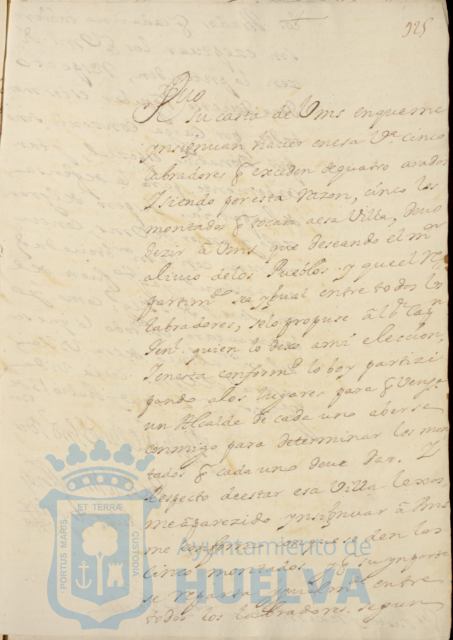 325
su carta de Vms en que me
ynsignuan haver en esa Va. cinco
labradores q exceden de quatro arados
Y siendo por esta razon, cinco los
montados q tocan a esa Villa, devo
dezir â Vms que deseando el mr
alivio de los Pueblos, y que el Re
partimto. sea ygual entre todos los
labradores, se lo propuse âl Sr Capn
Genl. quien lo dexo a mi eleccion,
Y en esta conformd. lo boy partizi
pando a los lugares para q venga
un Alcalde de cada uno a berse
conmigo para determinar los mon
tados q cada uno deve dar. Y
respecto de estar esa Villa lexos
me â parezido ynsignuar â Vms
me que se den los
cinco montados, y su ymporte
se reparta ygualmte. entre
todos los labradores segun
ET TERRÆ
PORTUS MARIS
CUSTODIA
Ayuntamiento de
HUELVA